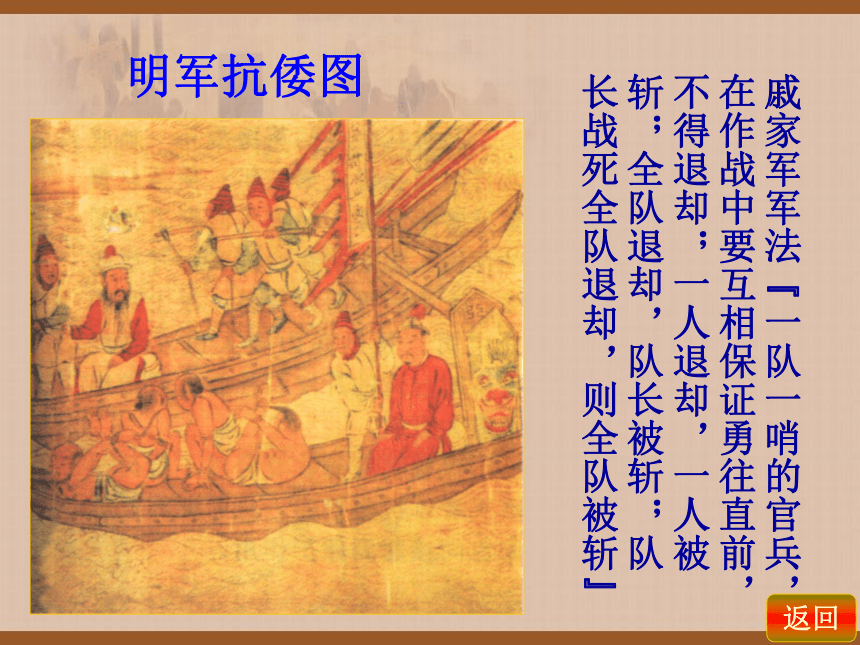 明军抗倭图
戚家军军法『一队一哨的官兵，
在作战中要互相保证勇往直前，
不得退却；一人退却，一人被
斩；全队退却，队长被斩；队
长战死全队退却，则全队被斩』
返回